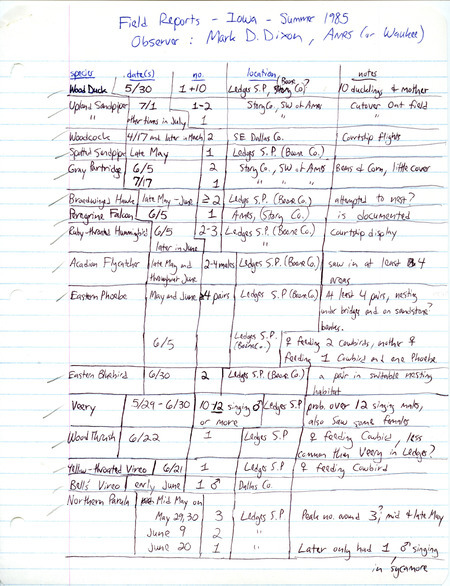 Field Reports - Iowa - Summer 1985
Observer: Mark D. Dixon, Ames (or Waukee)
species date(s) no. location notes
Wood Duck 5/30 1+10 Ledges S.P., Boone Co.? 10 ducklings & mother
Upland Sandpiper 7/1 1-2 Story Co., SW of Ames cutover Oat field
" other times in July 1
Woodcock 4/17 and later in March 2 SE Dallas Co. Courtship flights
Spotted Sandpiper late May 1 Ledges S.P. (Boone Co.)
Gray Partridge 6/5 2 Story Co., SW of Ames Beans & Corn, little cover
7/17 1 " " "
Broadwinged Hawk late May - June ≥2 Ledges S.P. (Boone Co.) attempted to nest?
Peregrine Falcon 6/5 1 Ames, (Story Co.) is documented
Ruby-throated Hummingbird 6/5 2-3 Ledges S.P. (Boone Co.) Courtship display
later in June "
Acadian Flycatcher late May and throughout June 2-4 males Ledges S.P. (Boone Co.) saw in at least 4
areas
Eastern Phoebe May and June 4 pairs Ledges S.P. (Boone Co.) At least 4 pairs, nesting
under bridges and on sandstone?
banks.
6/5 Ledges S.P. (Boone Co.) ♀ feeding 2 Cowbirds, another ♀
feeding 1 Cowbird and one Phoebe
Eastern Bluebird 6/30 2 Ledges S.P. (Boone Co.) a pair in suitable nesting
habitat
Veery 5/29 - 6/30 10-12 singing ♂ Ledges S.P. prob. over 12 singing males,
or more also saw some females
Wood Thrush 6/22 1 Ledges S.P ♀ feeding Cowbird, less
common than Veery in Ledges?
Yellow-throated Vireo 6/21 1 Ledges S.P ♀ feeding Cowbird
Bell's Vireo early June 1 ♂ Dallas Co.
Northern Parula Mid May on
May 29,30 3 Ledges S.P Peak no. around 3?, mid & late May
June 9 2 "
June 20 1 " Later only had 1 ♂ singing
in sycamore